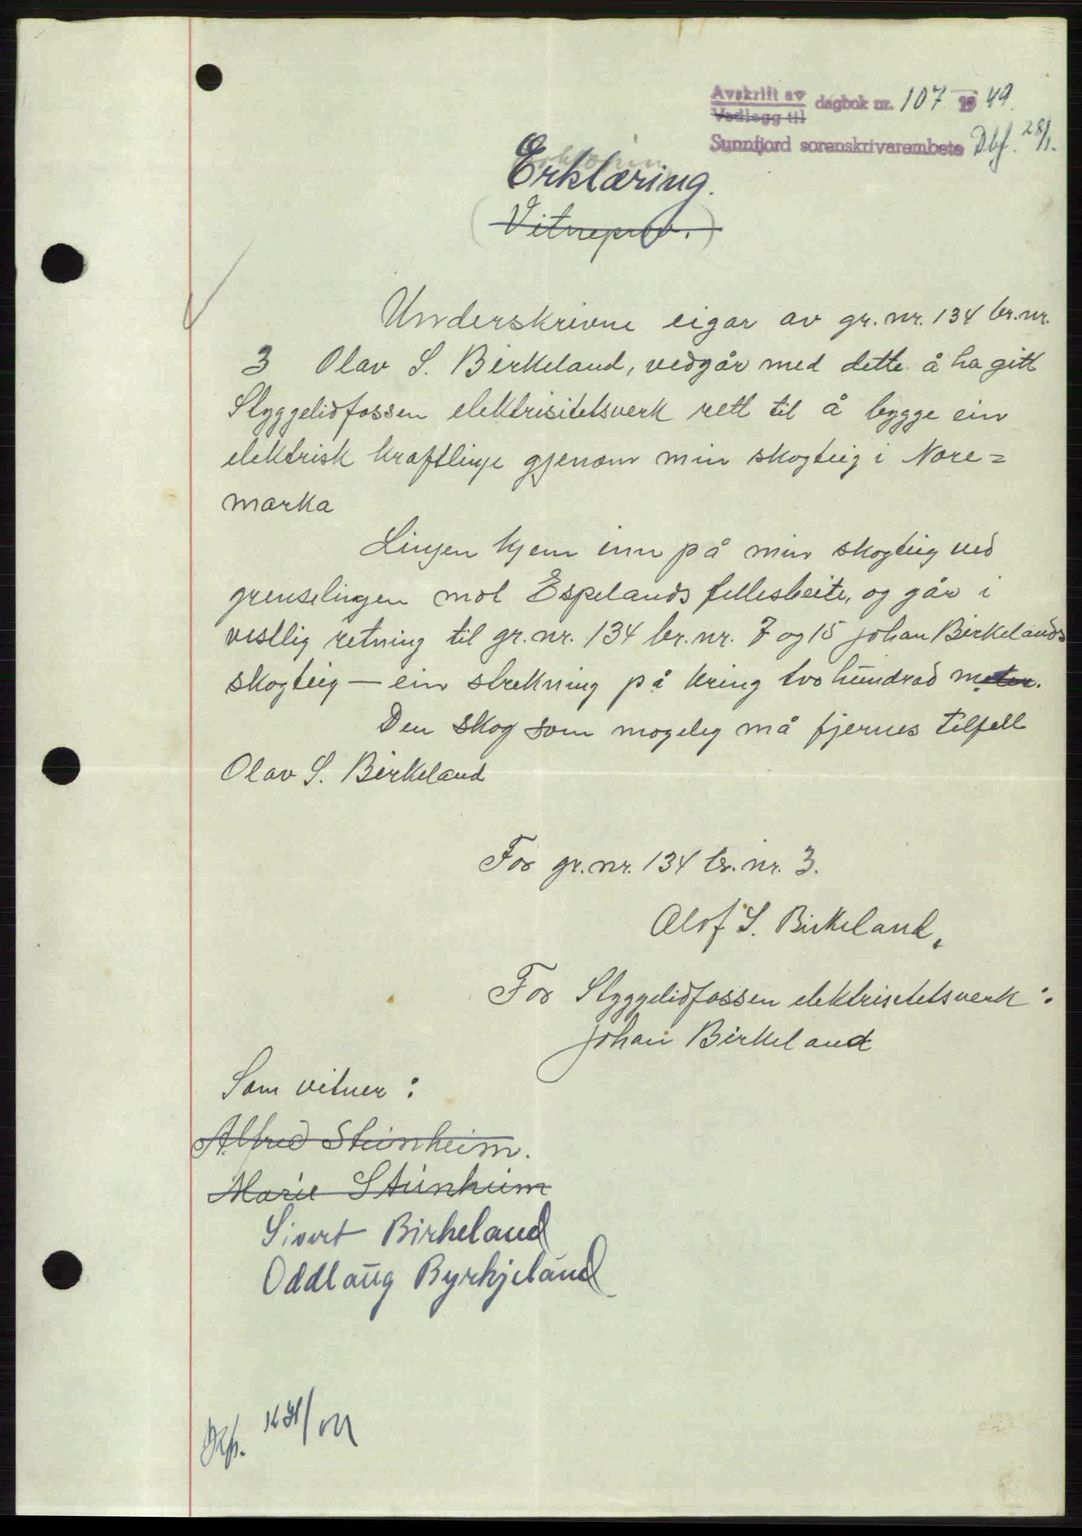 Avskrift av
Vedlegg til
dagbok nr. 107 19 49
Sunnfjord sorenskrivarembete Dbf. 28/1.
Erklæring.
(Vitneprov.)
Underskrivne eigar av gr. nr. 134 br. nr.
3 Olav S. Birkeland, vedgår med dette å ha gitt
Styggelidfossen elektrisitetsverk rett til å bygge ein
elektrisk kraftlinje gjenom min skogteig i Nore=
marka
Linjen kjem inn på min skogteig ved
grenselinjen mot Espelands fellesbeite, og går i
vestlig retning til gr. nr. 134 br. nr. 7 og 15 Johan Birkelands
skogteig — ein strekning på kring tvo hundrad meter.
Den skog som mogeleg må fjernes tilfell
Olav S. Birkeland
For gr. nr. 134 br. nr. 3.
Olof S. Birkeland,
For Styggelidfossen elektrisitetsverk:
Johan Birkeland
Som vitner:
Alfred Steinheim.
Marie Steinheim
Sivert Birkeland
Oddlaug Byrkjeland